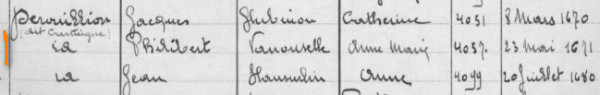 Perouillion Jacques Thubinion Catherine 4051 8 Mars 1670
(dit Crustaigne)
id Philibert Vanouselle Anne Marie 4057 23 Mai 1671
id Jean Hannudin Anne 4099 20 Juillet 1680